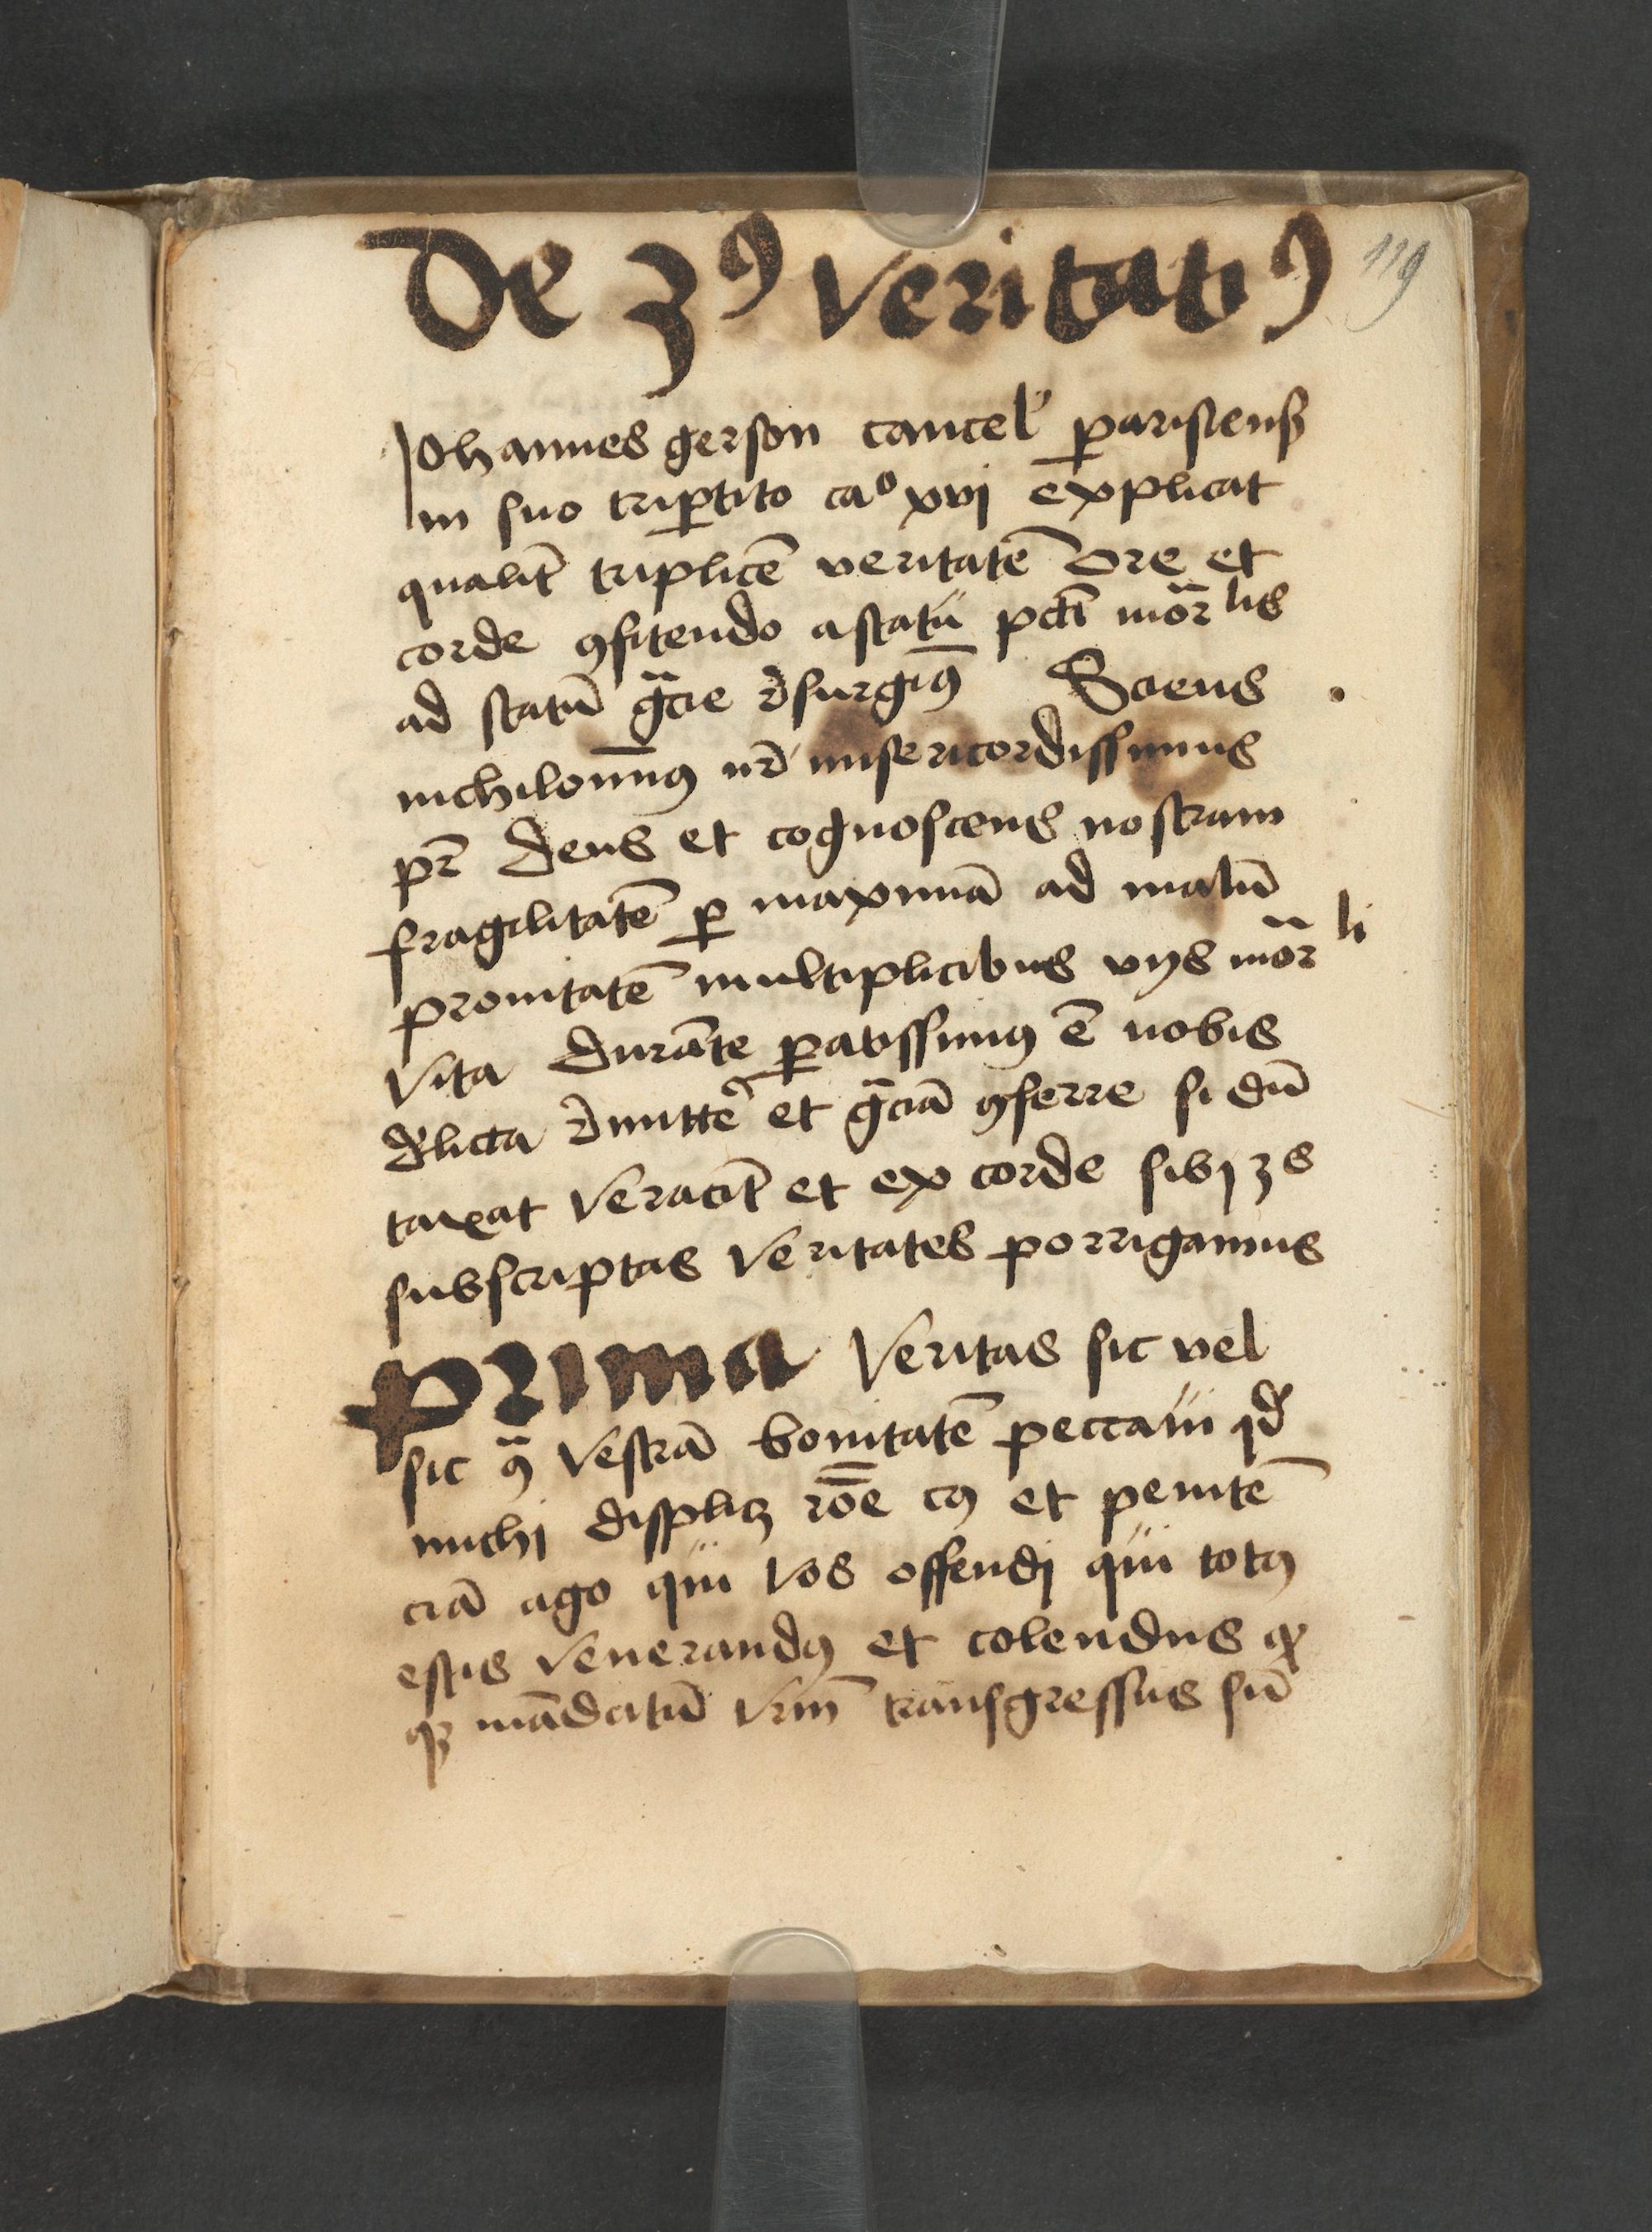 De 3ꝰ veritatiꝰ 119
Johannes gerson cancelꝰ ꝑarisiensß
in suo triꝑtito caº xvj explicat
qualit᷑ triplicē veritatē ore et
corde ꝯfitendo a statu pcti mor̄lis
ad statū gr̄cie r̄surgimꝰ Sciens
nichilominꝰ nr̄ misericordissimus
pr̄ deus et cognoscens nostram
fragilitatē ꝑ maximā ad malū
pronitatē multiplicibus vijs mor̄li
vita durāte ꝑatissimꝰ ē nobis
dĺicta r̄mittē et gr̄ciā ꝯferre si dū
taxat veracit᷑ et ex corde sibj 3s
subscriptas veritates porrigamus
Prima veritas sic vel
sic ꝯ̄ vestrā bonitatē peccaui qd̓
michj displicꝫ rōe cꝰ et penitē
ciā ago qui vos offendj qui totꝰ
estis venerandꝰ et colendus ꝙ
qꝫ mādatū vrm̄ transgressus sū